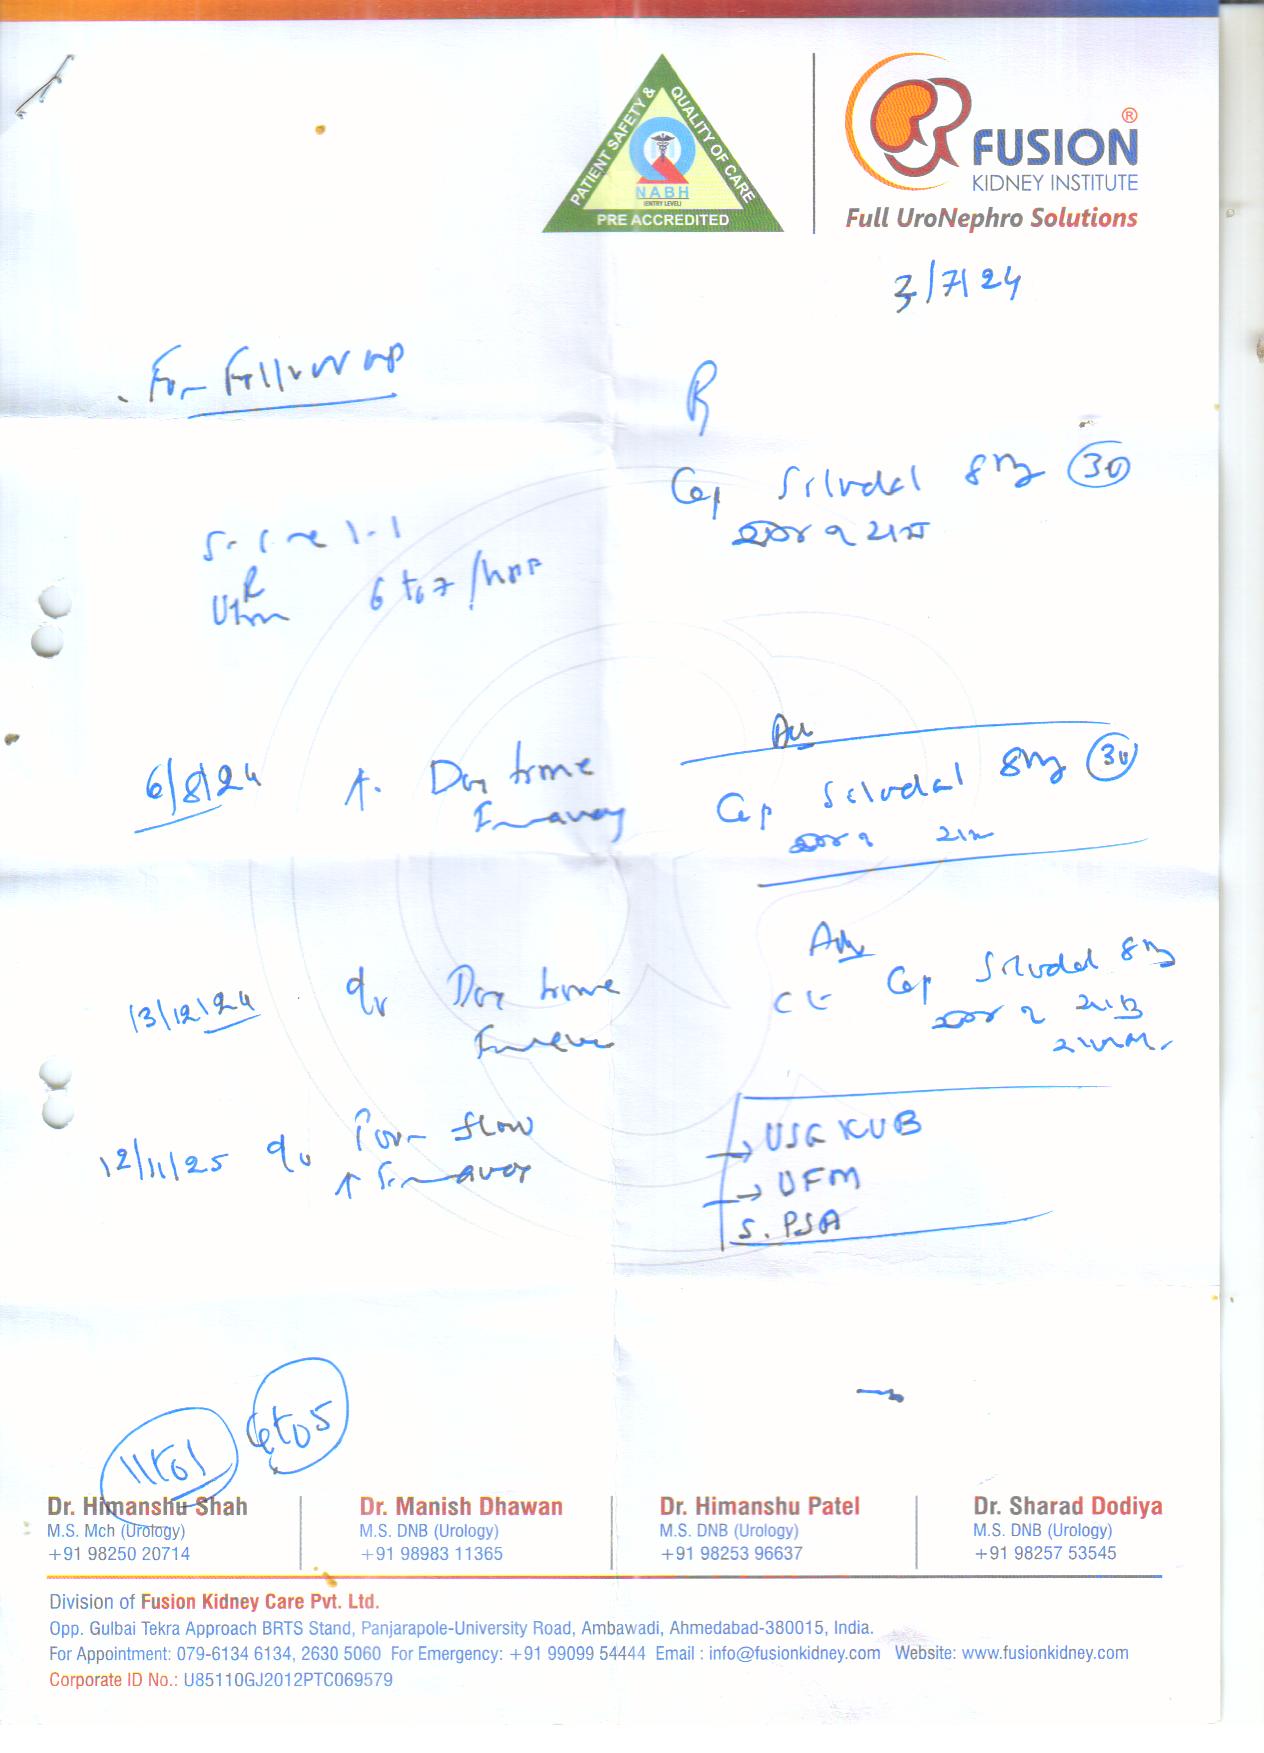 PATIENT SAFETY & QUALITY OF CARE
NABH
(ENTRY LEVEL)
PRE ACCREDITED
FUSION®
KIDNEY INSTITUTE
Full UroNephro Solutions
3/7/24
For Follow up
R
Cap Silodal 8mg 30
૧ રાત્રે
S. Cre 1.1
R
6 to 7 / hpf
6/8/24 ↑ Day time
Adv
Cap Silodal 8mg 30
૧
13/12/24 Day time
Adv
Cap Silodal 8mg
૧
12/11/25 Poor flow
↑
→ USG KUB
→ UFM
S. PSA
11 to 1
4 to 5
Dr. Himanshu Shah
M.S. Mch (Urology)
+91 98250 20714
Dr. Manish Dhawan
M.S. DNB (Urology)
+91 98983 11365
Dr. Himanshu Patel
M.S. DNB (Urology)
+91 98253 96637
Dr. Sharad Dodiya
M.S. DNB (Urology)
+91 98257 53545
Division of Fusion Kidney Care Pvt. Ltd.
Opp. Gulbai Tekra Approach BRTS Stand, Panjarapole-University Road, Ambawadi, Ahmedabad-380015, India.
For Appointment: 079-6134 6134, 2630 5060 For Emergency: +91 99099 54444 Email : info@fusionkidney.com Website: www.fusionkidney.com
Corporate ID No.: U85110GJ2012PTC069579